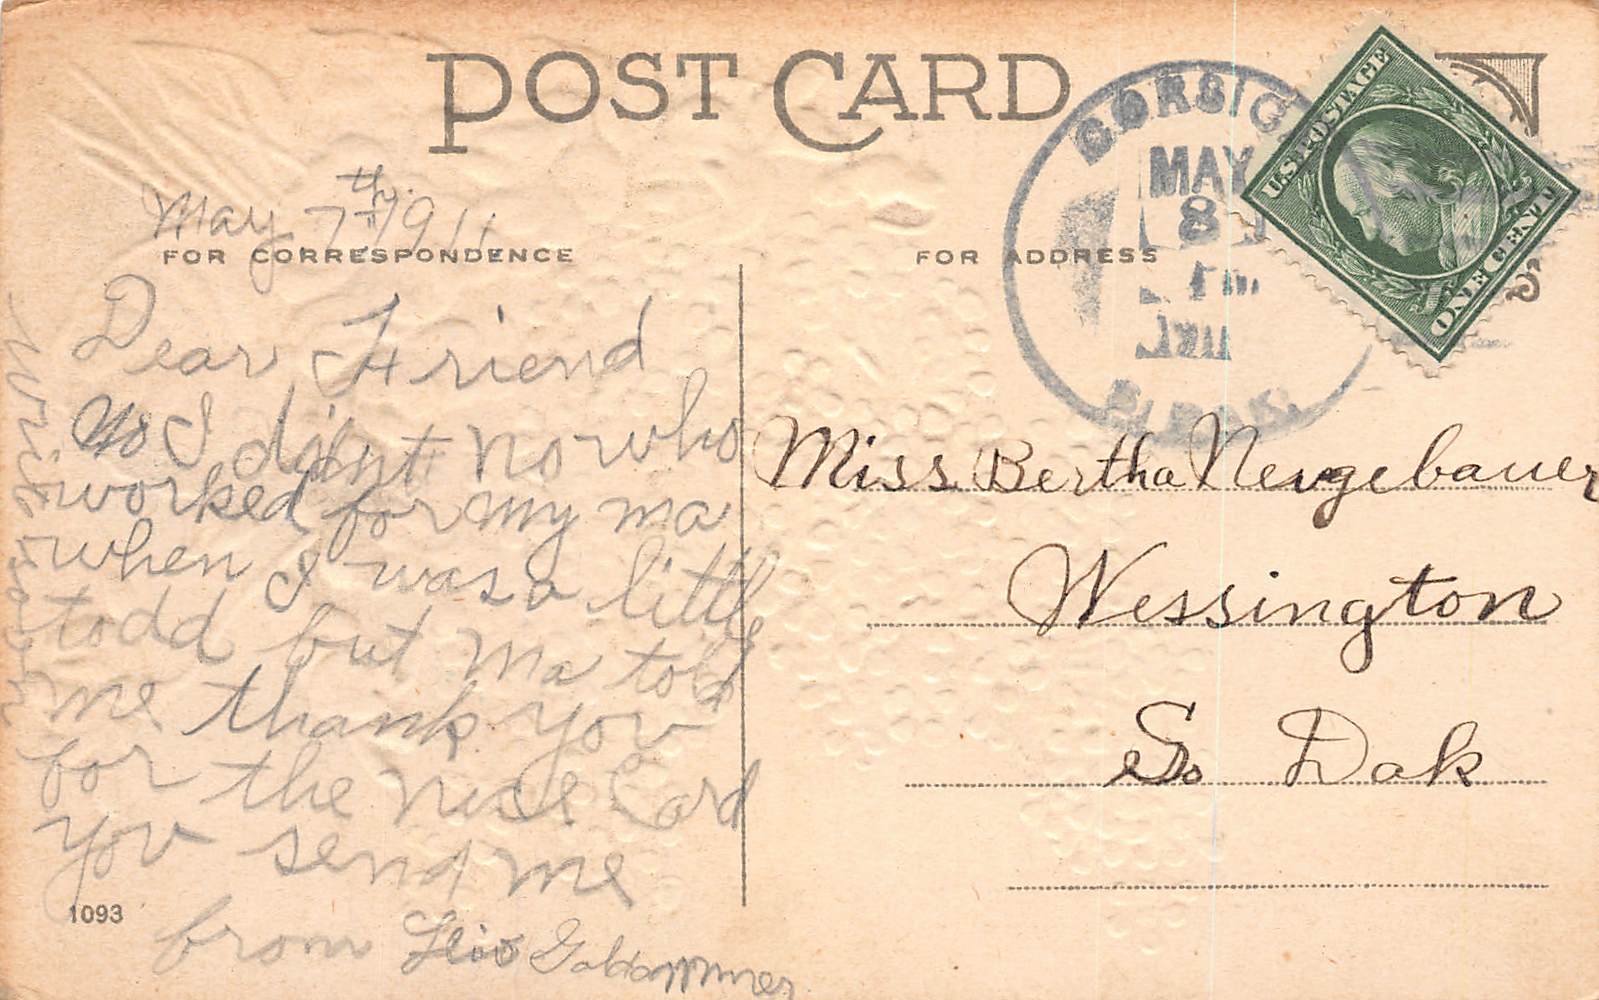 POST CARD
CORSIC
MAY
8
S. DAK.
U.S. POSTAGE
ONE CENT
May 7th 1911
FOR CORRESPONDENCE
FOR ADDRESS
Dear Friend
I didnt no who
worked for my ma
when I was a little
todd but Ma told
me thank you
for the nice Card
you send me
from
Miss. Bertha Neugebauer
Wessington
So Dak
1093